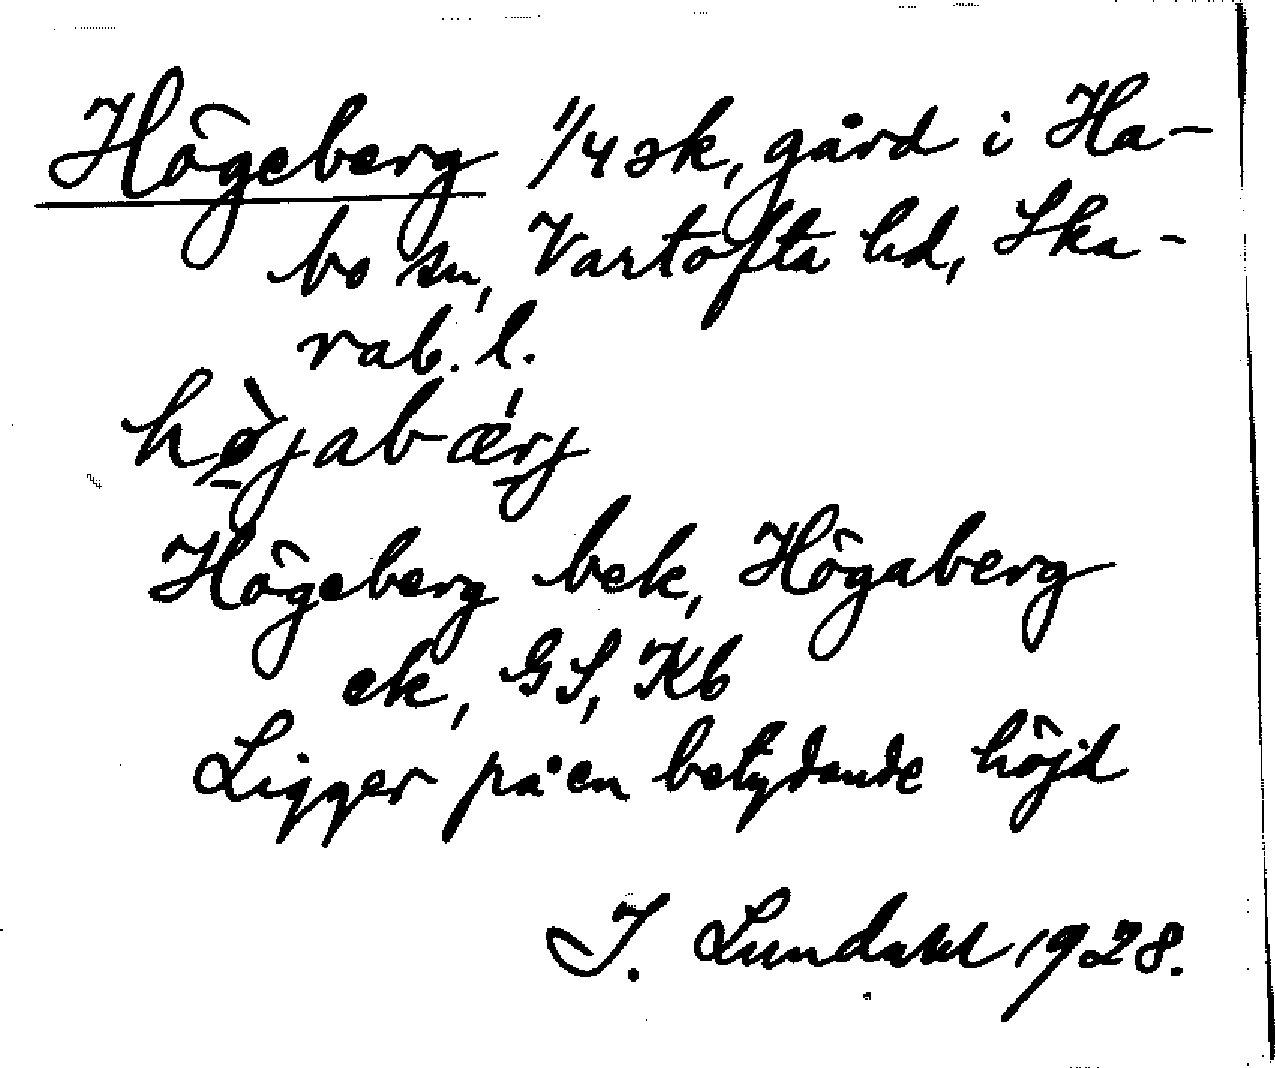 Högeberg 1/4 sk, gård i Ha-
bo sn, Vartofta hd, Ska-
rab. l.
hø̀jabærj
Högeberg bek, Högaberg
ek, GS, Kb
Ligger på en betydande höjd
I. Lundahl 1928.